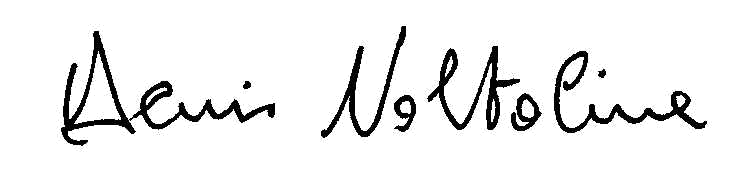 Denis Voltolina